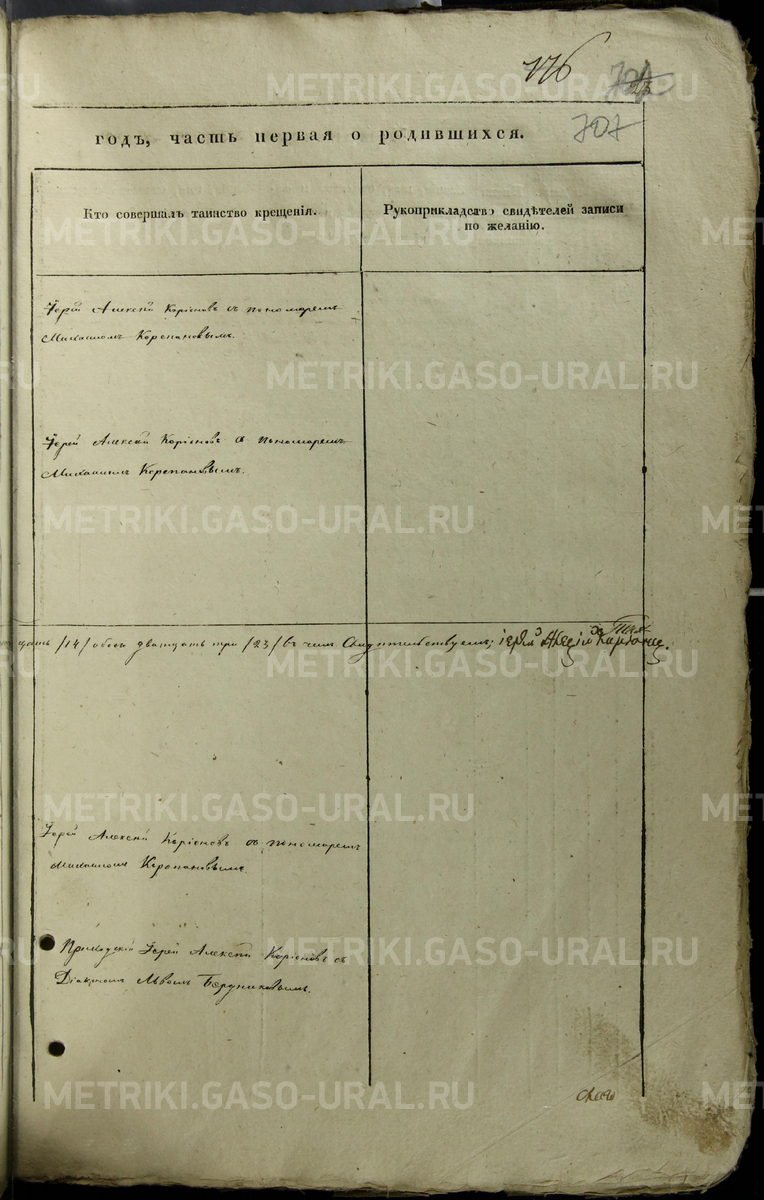 176
707
годъ, часть первая о родившихся.
Кто совершалъ таинство крещенія.
Рукоприкладство свидѣтелей записи
по желанію.
Іерей Алексѣй Коріоновъ съ пономаремъ
Михаиломъ Корепановымъ.
Іерей Алексѣй Коріоновъ съ пономаремъ
Михаиломъ Корепановымъ.
/14/ обоего двадцать три /23/ въ чемъ свидѣтельствуемъ;
Іерей Алексѣй Коріоновъ съ пономаремъ
Михаиломъ Корепановымъ.
Приходскій Іерей Алексѣй Коріоновъ съ
Діакономъ Львомъ
METRIKI.GASO-URAL.RU